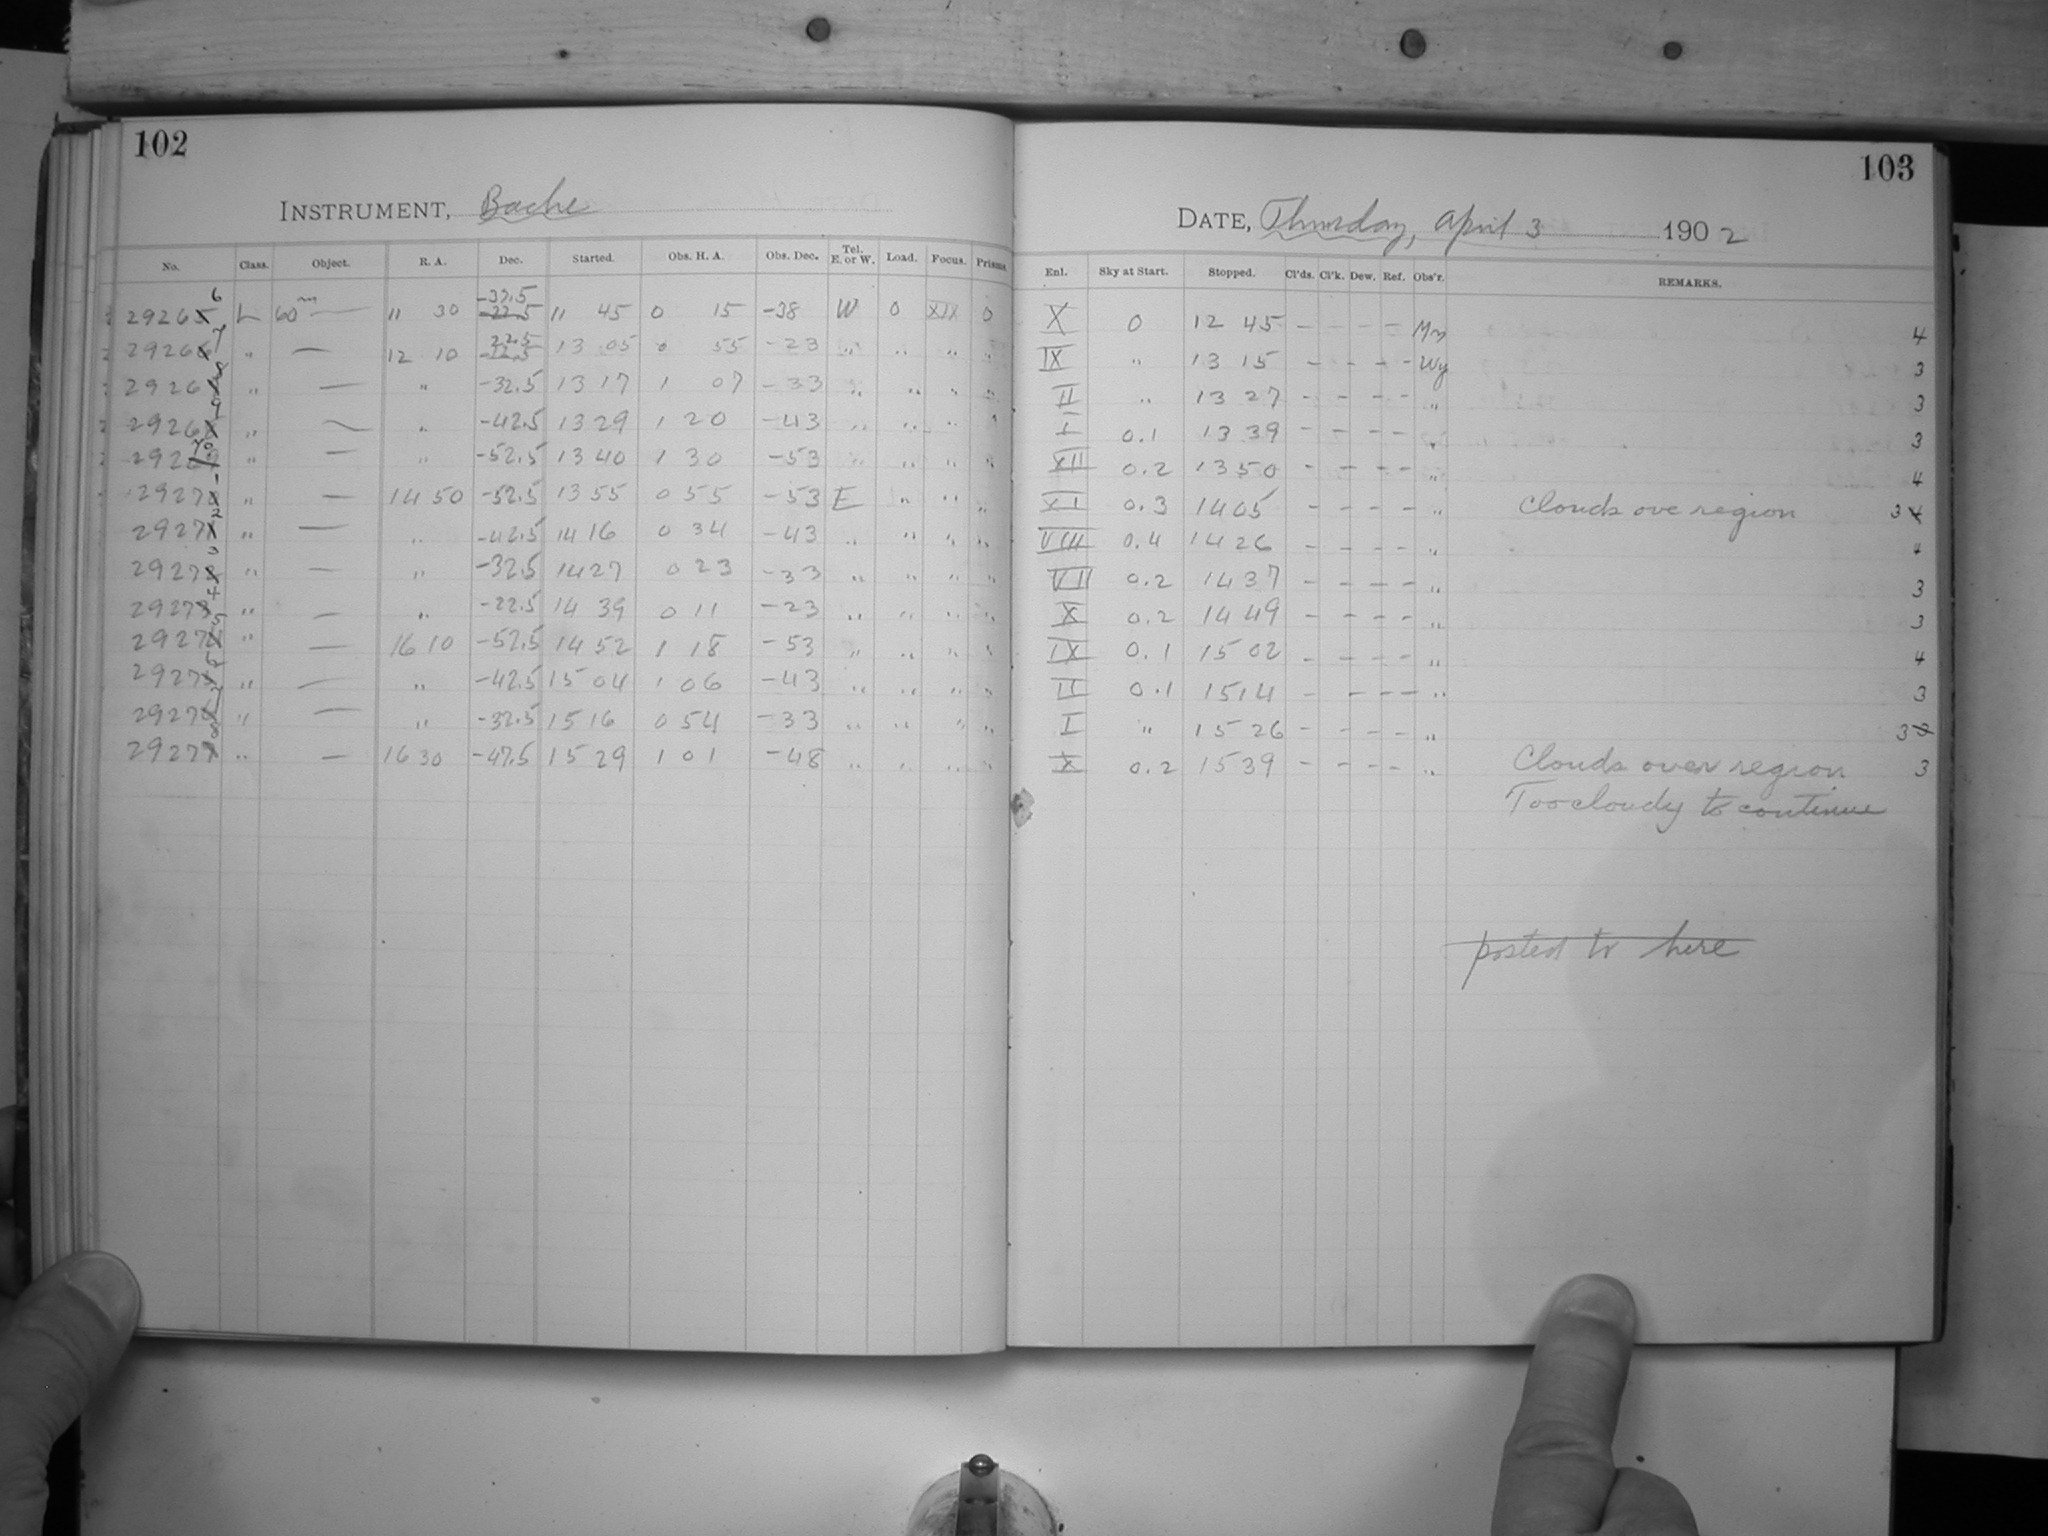 102
INSTRUMENT, Bache
No. Class. Object. R. A. Dec. Started. Obs. H. A. Obs. Dec. Tel. E. or W. Load. Focus. Prisms.
29266 L 60m — 11 30 -37.5 11 45 0 15 -38 W 0 XIX 0
29267 " — 12 10 22.5 13 05 0 55 -23 " " " "
29268 " — " -32.5 13 17 1 07 -33 " " " "
29269 " — " -42.5 13 29 1 20 -43 " " " "
29270 " — " -52.5 13 40 1 30 -53 " " " "
29271 " — 14 50 -52.5 13 55 0 55 -53 E " " "
29272 " — " -42.5 14 16 0 34 -43 " " " "
29273 " — " -32.5 14 27 0 23 -33 " " " "
29274 " — " -22.5 14 39 0 11 -23 " " " "
29275 " — 16 10 -52.5 14 52 1 18 -53 " " " "
29276 " — " -42.5 15 04 1 06 -43 " " " "
29277 " — " -32.5 15 16 0 54 -33 " " " "
29278 " — 16 30 -47.5 15 29 1 01 -48 " " " "
103
DATE, Thursday, April 3 1902
Enl. Sky at Start. Stopped. Cl'ds. Cl'k. Dew. Ref. Obs'r. REMARKS.
X 0 12 45 – – – – 4
IX " 13 15 – – – – Wy 3
II " 13 27 – – – – " 3
I 0.1 13 39 – – – – " 3
XII 0.2 13 50 – – – – " 4
XI 0.3 14 05 – – – – " Clouds ove region 3
VIII 0.4 14 26 – – – – " 4
VII 0.2 14 37 – – – – " 3
X 0.2 14 49 – – – – " 3
IX 0.1 15 02 – – – – " 4
II 0.1 15 14 – – – – " 3
I " 15 26 – – – – " 3
X 0.2 15 39 – – – – " Clouds over region 3
Too cloudy to continue
posted to here